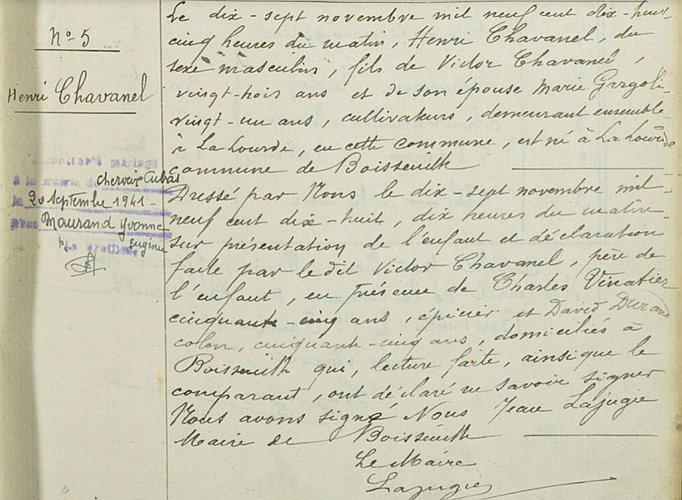 N° 5
Henri Chavanel
contracté mariage
à la mairie de Chervix Cubas
le 20 septembre 1941
avec Maurand Yvonne
Eugénie
Le greffier
Le dix-sept novembre mil neuf cent dix-huit
cinq heures du matin, Henri Chavanel, du
sexe masculin, fils de Victor Chavanel,
vingt-trois ans et de son épouse Marie Gargoli
vingt-un ans, cultivateurs, demeurant ensemble
à La Lourde, en cette commune, est né à La Lourde
commune de Boisseuilh
Dressé par Nous le dix-sept novembre mil-
neuf cent dix-huit, dix heures du matin
sur présentation de l'enfant et déclaration
faite par le dit Victor Chavanel, père de
l'enfant, en présence de Charles Vinatier
cinquante-cinq ans, épicier et David Durand
colon, cinquante-cinq ans, domiciliés à
Boisseuilh qui, lecture faite, ainsi que le
comparant, ont déclaré ne savoir signer
Nous avons signé Nous Jean Lajugie
Maire de Boisseuilh
Le Maire
Lajugie